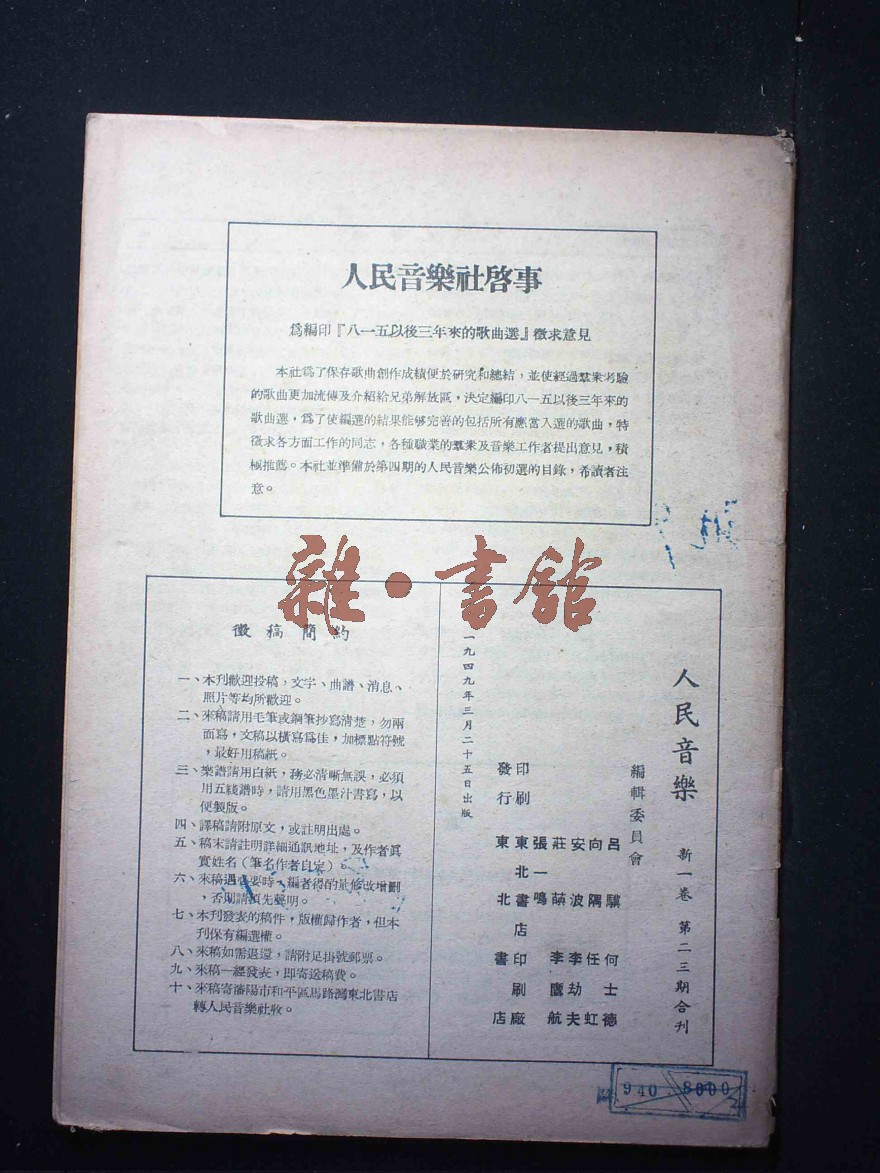 人民音樂社啓事
爲編印『八一五以後三年來的歌曲選』徵求意見
本社爲了保存歌曲創作成績便於研究和總結，並使經過羣衆考驗
的歌曲更加流傳及介紹給兄弟解放區，決定編印八一五以後三年來的
歌曲選，爲了使編選的結果能够完善的包括所有應當入選的歌曲，特
徵求各方面工作的同志，各種職業的羣衆及音樂工作者提出意見，積
極推薦。本社並準備於第四期的人民音樂公佈初選的目錄，希讀者注
意。
雜·書館
人民音樂 新一卷 第二三期合刊
編輯委員會
呂驥 何士德
向隅 任虹
安波 李劫夫
莊蒴 李鷹航
張一鳴
印刷 東北書店印刷廠
發行 東北書店
一九四九年三月二十五日出版
徵稿簡約
一、本刊歡迎投稿，文字、曲譜、消息、
照片等均所歡迎。
二、來稿請用毛筆或鋼筆抄寫清楚，勿兩
面寫，文稿以橫寫爲佳，加標點符號
，最好用稿紙。
三、樂譜請用白紙，務必清晰無誤，必須
用五綫譜時，請用黑色墨汁書寫，以
便製版。
四、譯稿請附原文，或註明出處。
五、稿末請註明詳細通訊地址，及作者眞
實姓名（筆名作者自定）。
六、來稿遇必要時，編者得酌量修改增刪
，否則請預先聲明。
七、本刊發表的稿件，版權歸作者，但本
刊保有編選權。
八、來稿如需退還，請附足掛號郵票。
九、來稿一經發表，即寄送稿費。
十、來稿寄瀋陽市和平區馬路灣東北書店
轉人民音樂社收。
940 8000